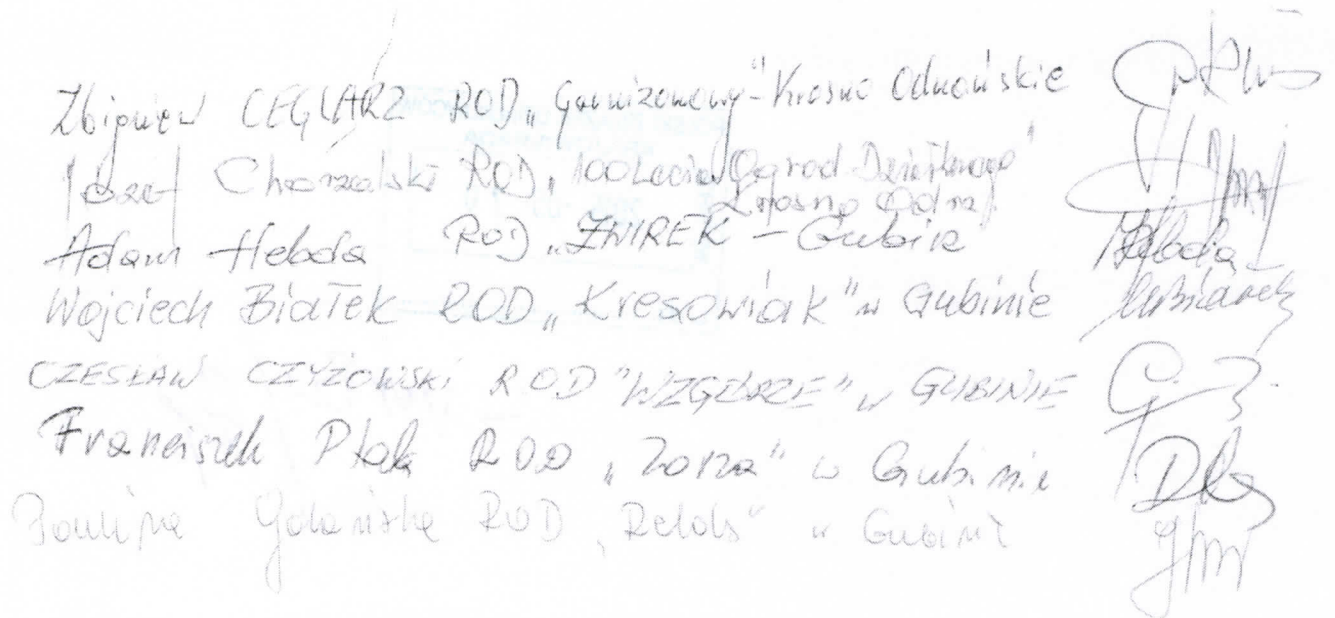 Zbigniew CEGLARZ ROD „Garnizonowy" - Krosno Odrzańskie
Józef Chorzalski ROD „100Lecia Ogrod Działkowego"
Krosno Odrz.
Adam Heboda ROD „ŻWIREK - Gubin
Wojciech Białek ROD „Kresowiak" w Gubinie
CZESŁAW CZYŻOWSKI ROD "WZGÓRZE" w GUBINIE
Franciszek Ptak ROD „Zorza" w Gubinie
Paulina Gdańska ROD „Relaks" w Gubinie